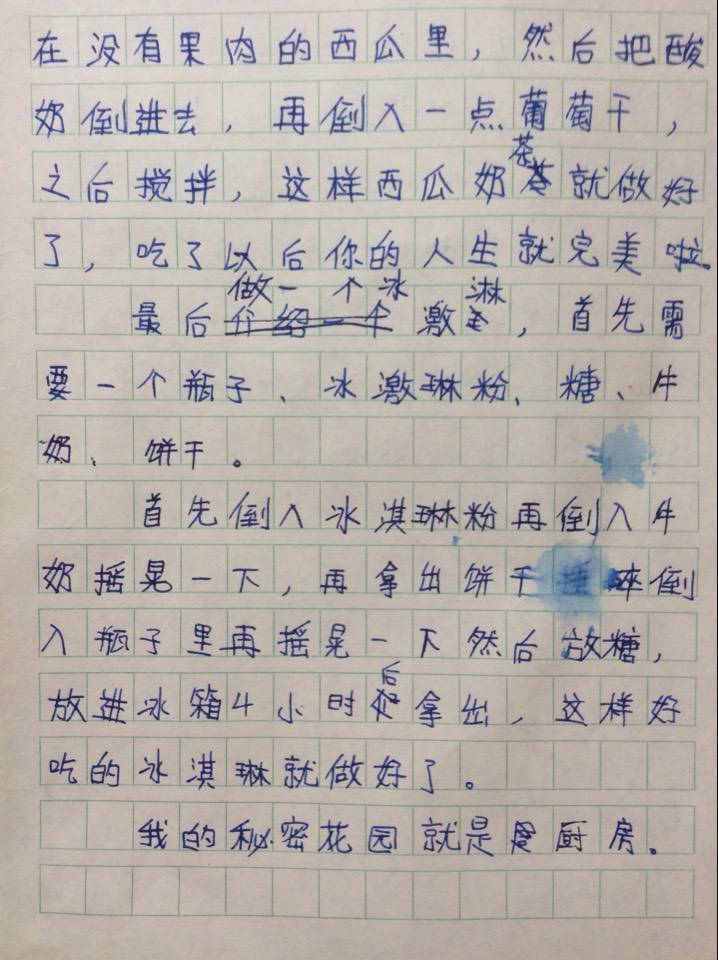 在没有果肉的西瓜里，然后把酸
奶倒进去，再倒入一点葡萄干，
之后搅拌，这样西瓜奶茶就做好
了，吃了以后你的人生就完美啦。
最后做一个冰激淋，首先需
要一个瓶子、冰激琳粉、糖、牛
奶、饼干。
首先倒入冰淇琳粉再倒入牛
奶摇晃一下，再拿出饼干捶碎倒
入瓶子里再摇晃一下然后放糖，
放进冰箱4小时后拿出，这样好
吃的冰淇琳就做好了。
我的秘密花园就是厨房。